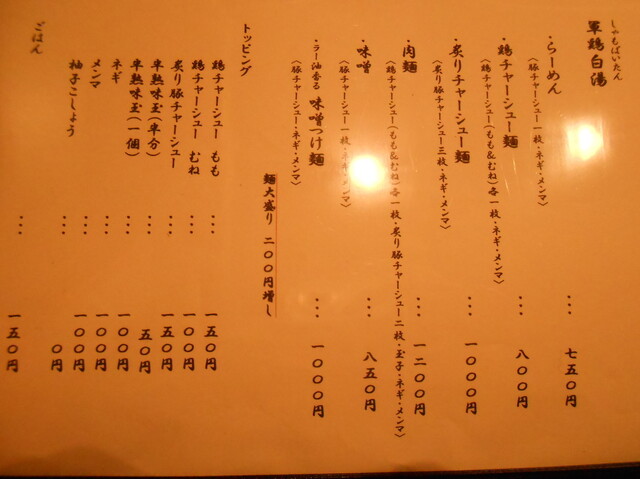 しゃもぱいたん
軍鶏白湯
・らーめん … 七五〇円
(豚チャーシュー一枚・ネギ・メンマ)
・鶏チャーシュー麺 … 八〇〇円
(鶏チャーシュー(もも&むね)各一枚・ネギ・メンマ)
・炙りチャーシュー麺 … 一〇〇〇円
(炙り豚チャーシュー三枚・ネギ・メンマ)
・肉麺 … 一二〇〇円
(鶏チャーシュー(もも&むね)各一枚・炙り豚チャーシュー二枚・玉子・ネギ・メンマ)
・味噌 … 八五〇円
(豚チャーシュー一枚・ネギ・メンマ)
・ラー油香る 味噌つけ麺 … 一〇〇〇円
(豚チャーシュー・ネギ・メンマ)
麺大盛り 二〇〇円増し
トッピング
鶏チャーシュー もも … 一五〇円
鶏チャーシュー むね … 一〇〇円
炙り豚チャーシュー … 一五〇円
半熟味玉(半分) … 五〇円
半熟味玉(一個) … 一〇〇円
ネギ … 一〇〇円
メンマ … 一〇〇円
柚子こしょう … 〇円
ごはん … 一五〇円